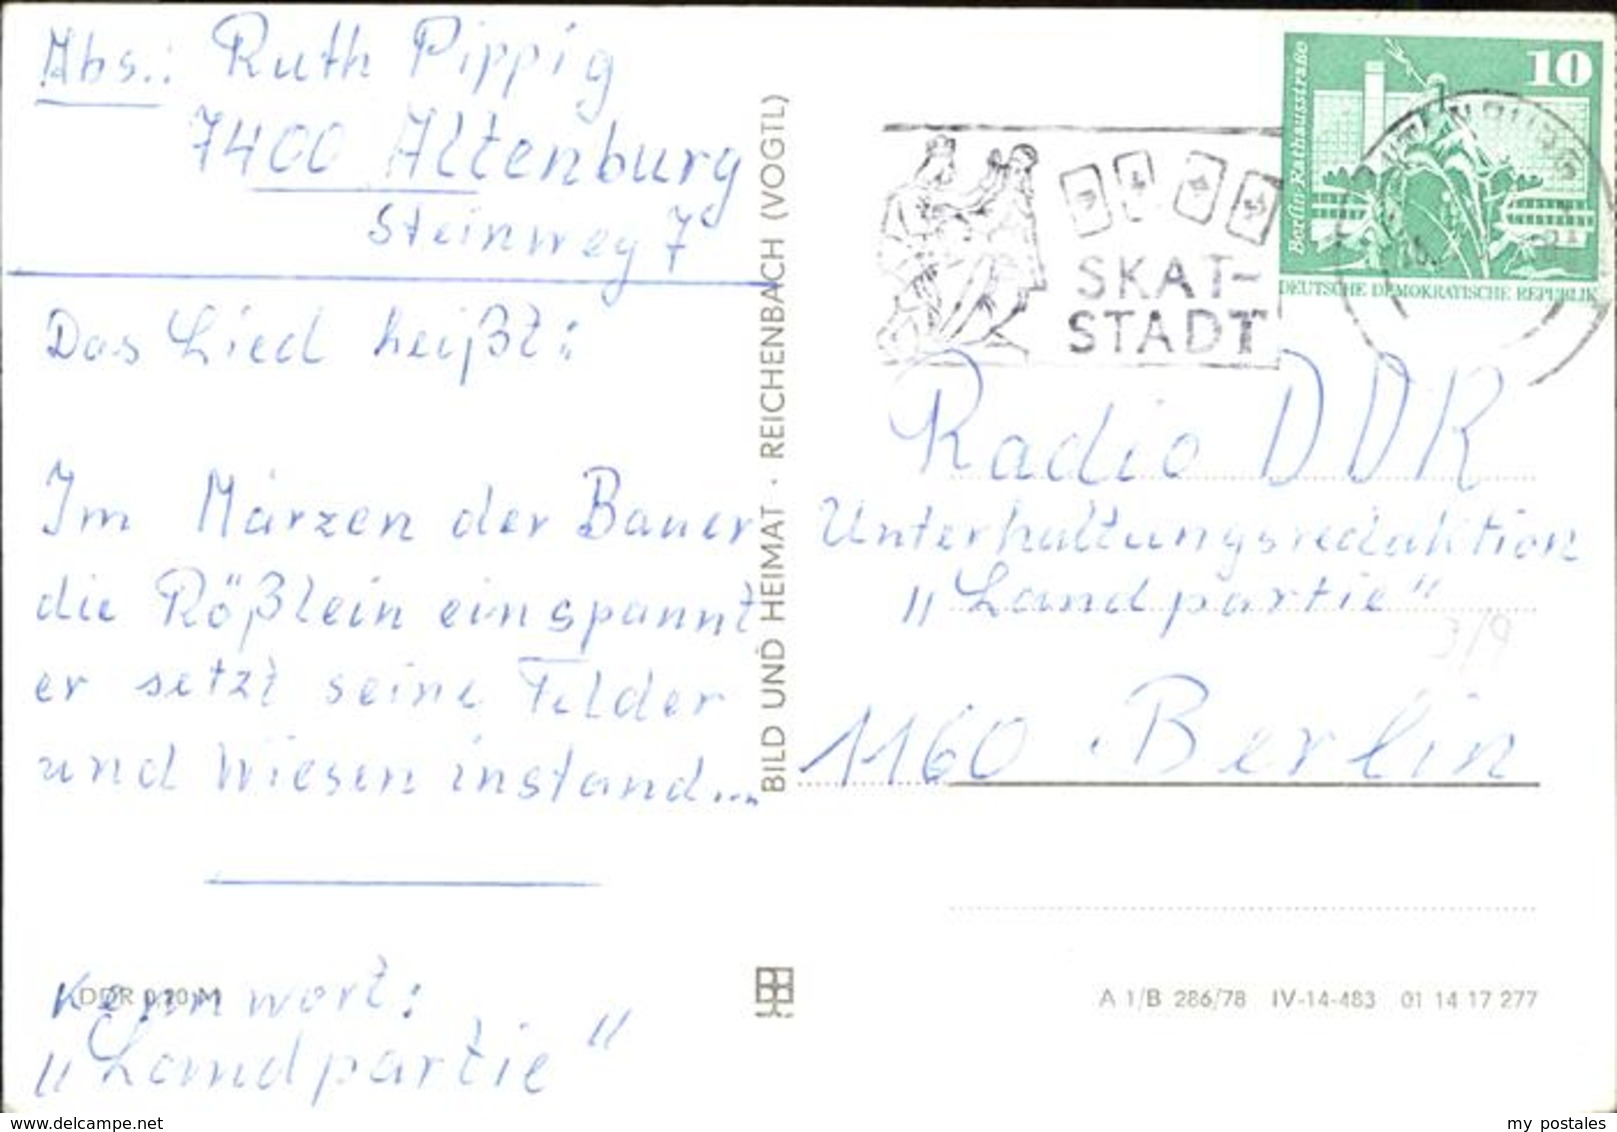 Abs.: Ruth Pippig
7400 Altenburg
Steinweg 7
Das Lied heißt:
Im Märzen der Bauer
die Rößlein einspannt
er setzt seine Felder
und Wiesen instand...
Kennwort:
„Landpartie"
DDR 0,20 M
BILD UND HEIMAT · REICHENBACH (VOGTL)
SKAT-
STADT
10
Berlin-Rathausstraße
DEUTSCHE DEMOKRATISCHE REPUBLIK
Radio DDR
Unterhaltungsredaktion
„Landpartie"
3/9
1160 Berlin
A 1/B 286/78 IV-14-483 01 14 17 277
www.delcampe.net
my_postales